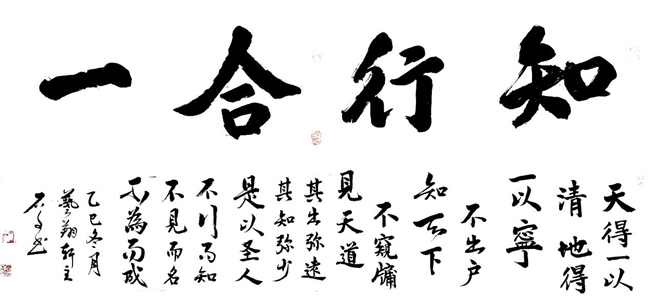 知行合一
天得一以
清地得
一以寧
不出户
知天下
不窺牖
見天道
其出弥遠
其知弥少
是以圣人
不行而知
不見而名
不為而成
乙巳冬月
藝翔軒主